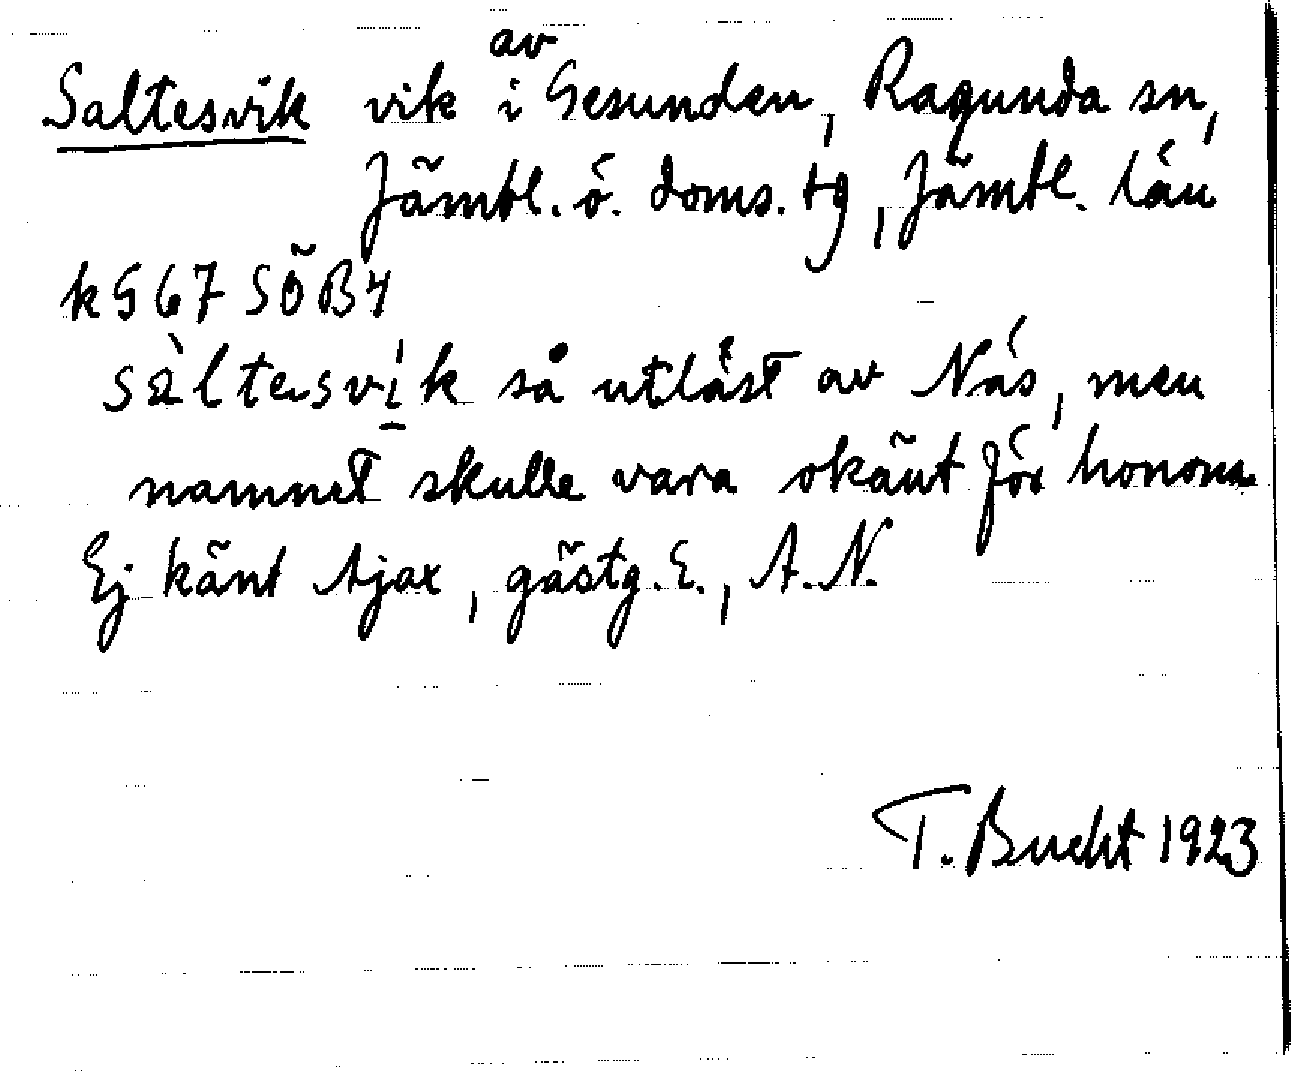 av
Saltesvik vik i Gesunden, Ragunda sn,
Jämtl. ö. doms. tg, Jämtl. län
k G 67 SÖB4
sàltesvi̱k så utläst av Näs, men
namnet skulle vara okänt för honom
Ej känt Ajax, gästg. E., A. N.
T. Bucht 1923